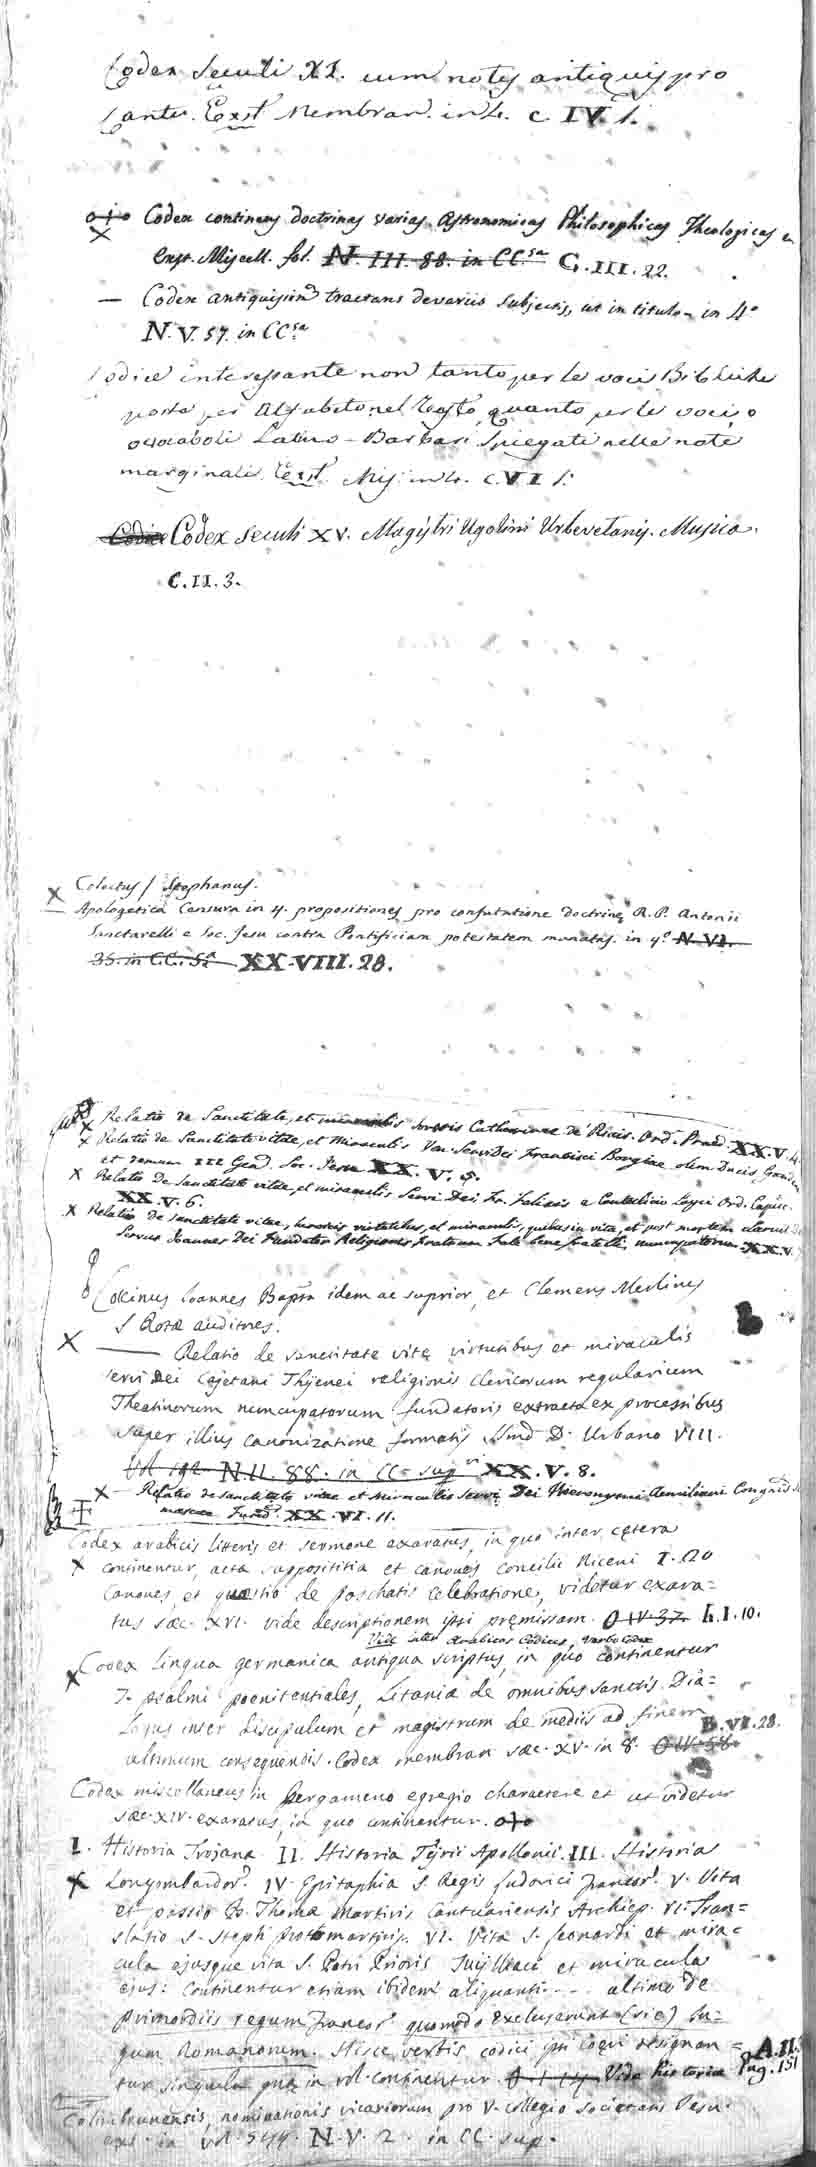 Codex Seculi XI. cum notis antiquis pro
Cantu. Exst. Membran. in 4. c. IV. 1.
Codex continens doctrinas varias Astronomicas Philosophicas Theologicas
exst. Miscell. fol. N. III. 88. in CC.sa G. III. 22.
— Codex antiquissim tractans de variis subjectis, ut in titulo - in 4o
N. V. 57. in CCsa
Codice interessante non tanto per le voci Bibliche
poste per Alfabeto nel Testo, quanto per le voci, o
o vocaboli Latino-Barbari spiegati nelle note
marginali. Exst. Mis. in 4. c. VI 1.
Codice Codex seculi XV. Magistri Ugolini Urbevetanis. Musica.
C. II. 3.
X Coloctus / Stephanus.
— Apologetica Censura in 4. propositiones pro confutatione doctrinę R. P. Antonii
Sanctarelli e Soc. Jesu contra Pontificiam potestatem in 4o N. VI.
35. in C.C. Sa XX.VIII. 28.
X Relatio de Sanctitate, et miraculis Sororis Catharinae de Riciis. Ord. Praed. XX. V. 4.
X Relatio de Sanctitate vitae, et miraculis Ven. Servi Dei Francisci Borgiae olim Ducis
et demum III Gen. Soc. Jesu XX. V. 5.
X Relatio de sanctitate vitae, et miraculis Servi Dei Fr. Felicis a Cantalicio Ord. Capuc.
XX. V. 6.
X Relatio de sanctitate vitae, virtutibus, et miraculis, quibus in vita, et post mortem claruit
Servus Joannes Dei Fundator Religionis fratrum Fate bene fratelli nuncupatorum XX. V.
Coccinus Ioannes Bapta idem ac suprior, et Clemens Merlinus
S Rotæ auditores.
X — Relatio de sanctitate vitę virtutibus et miraculis
servi Dei Cajetani Thyenei religionis clericorum regularium
Theatinorum nuncupatorum fundatoris extracta ex processibus
super illius canonizatione formatis D. Urbano VIII.
N. II. 88. in CC. sup XX. V. 8.
X — Relatio de sanctitate vitae et miraculis servi Dei Hieronymi Aemiliani
XX. VI. 11.
Codex arabicis litteris et sermone exaratus, in quo inter cętera
X continentur, acta supposititia et canones concilii Niceni I. 20
Canones, et quæstio de paschatis celebratione, videtur exara=
tus sæc. XVI. vide descriptionem ipsi pręmissam. O IV. 37. L. I. 10.
Vide inter Arabicos Codices, verbo Codex
X Codex lingua germanica antiqua scriptus, in quo continentur
7. psalmi poenitentiales, Litaniæ de omnibus sanctis. Dia=
logus inter discipulum et magistrum de mediis ad finem
ultimum consequendis. Codex membran. sæc. XV. in 8. O IV. 58. B. VI. 28.
Codex miscellaneus in pergameno egregio charactere et ut videtur
sæc. XIV. exaratus, in quo continentur.
I. Historia Trojana II. Historia Tyrii Apollonii. III. Historia
X Longombardor. IV. Epitaphia S. Regis Ludovici francor. V. Vita
et passio B. Thomæ martiris Cantuariensis Archiep. VI. Tran=
slatio S. Steph. Protomartiris. VI. Vita S. Leonardi et mira=
cula ejusque vita S. Petri Prioris et miracula
ejus: continentur etiam ibidem aliquanti ... altimo de
primordiis regum francor. quomodo excluserunt (sic) Ju=
gum Romanorum. Hisce verbis codici designan=
tur singula quæ in vol. continentur. Vide historia A. II.
Pag. 151
Colimbrunensis, nominationis vicariorum pro V. collegio societatis Jesu.
exs. in vol. 544. N. V. 2. in CC. sup.